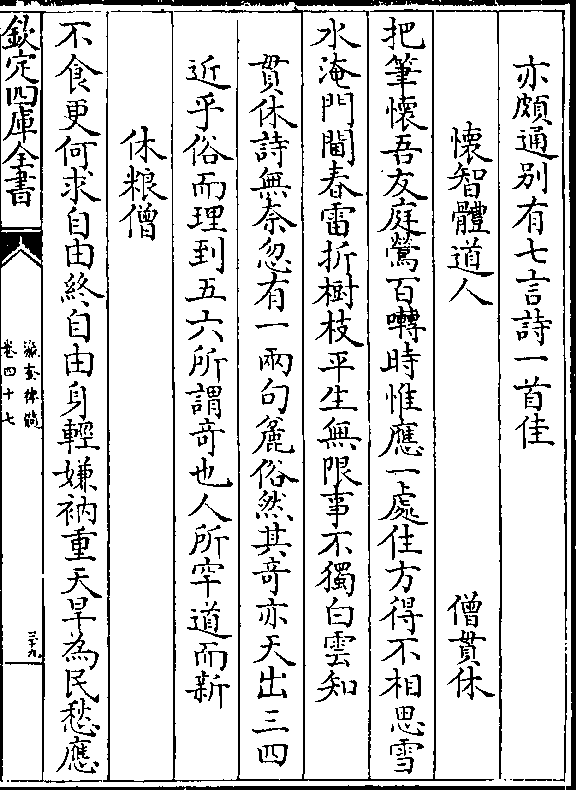 亦頗通别有七言詩一首佳
懷智體道人　僧貫休
把筆懷吾友庭鶯百囀時惟應一處住方得不相思雪
水淹門閫春雷折樹枝平生無限事不獨白雲知
貫休詩無奈忽有一兩句麄俗然其竒亦天出三四
近乎俗而理到五六所謂竒也人所罕道而新
休粮僧
不食更何求自由終自由身輕嫌衲重天旱為民愁應
欽定四庫全書
瀛奎律髓
卷四十七
三十九